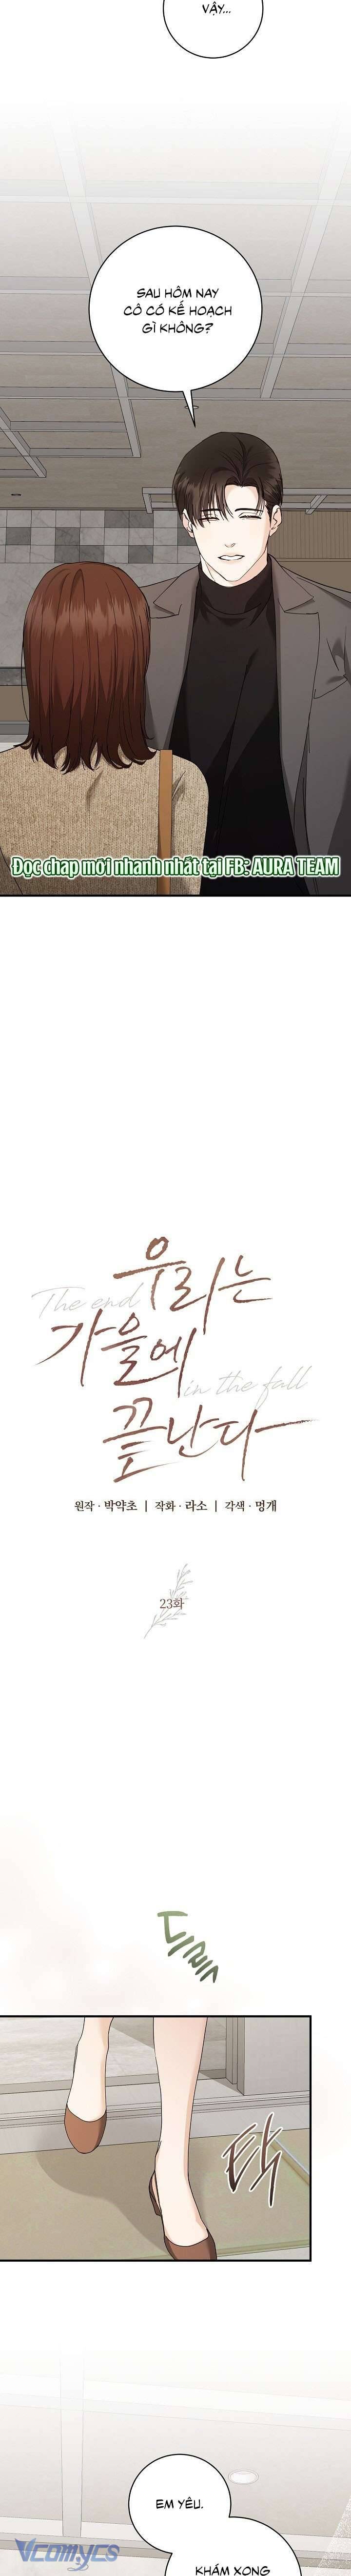 VẬY...
SAU HÔM NAY
CÔ CÓ KẾ HOẠCH
GÌ KHÔNG?
Đọc chap mới nhanh nhất tại FB: AURA TEAM
The end
우리는
가을에
in the fall
끝난다
원작·박약초 | 작화·라소 | 각색·멍개
23화
탁
EM YÊU.
KHÁM XONG
VCOMYCS